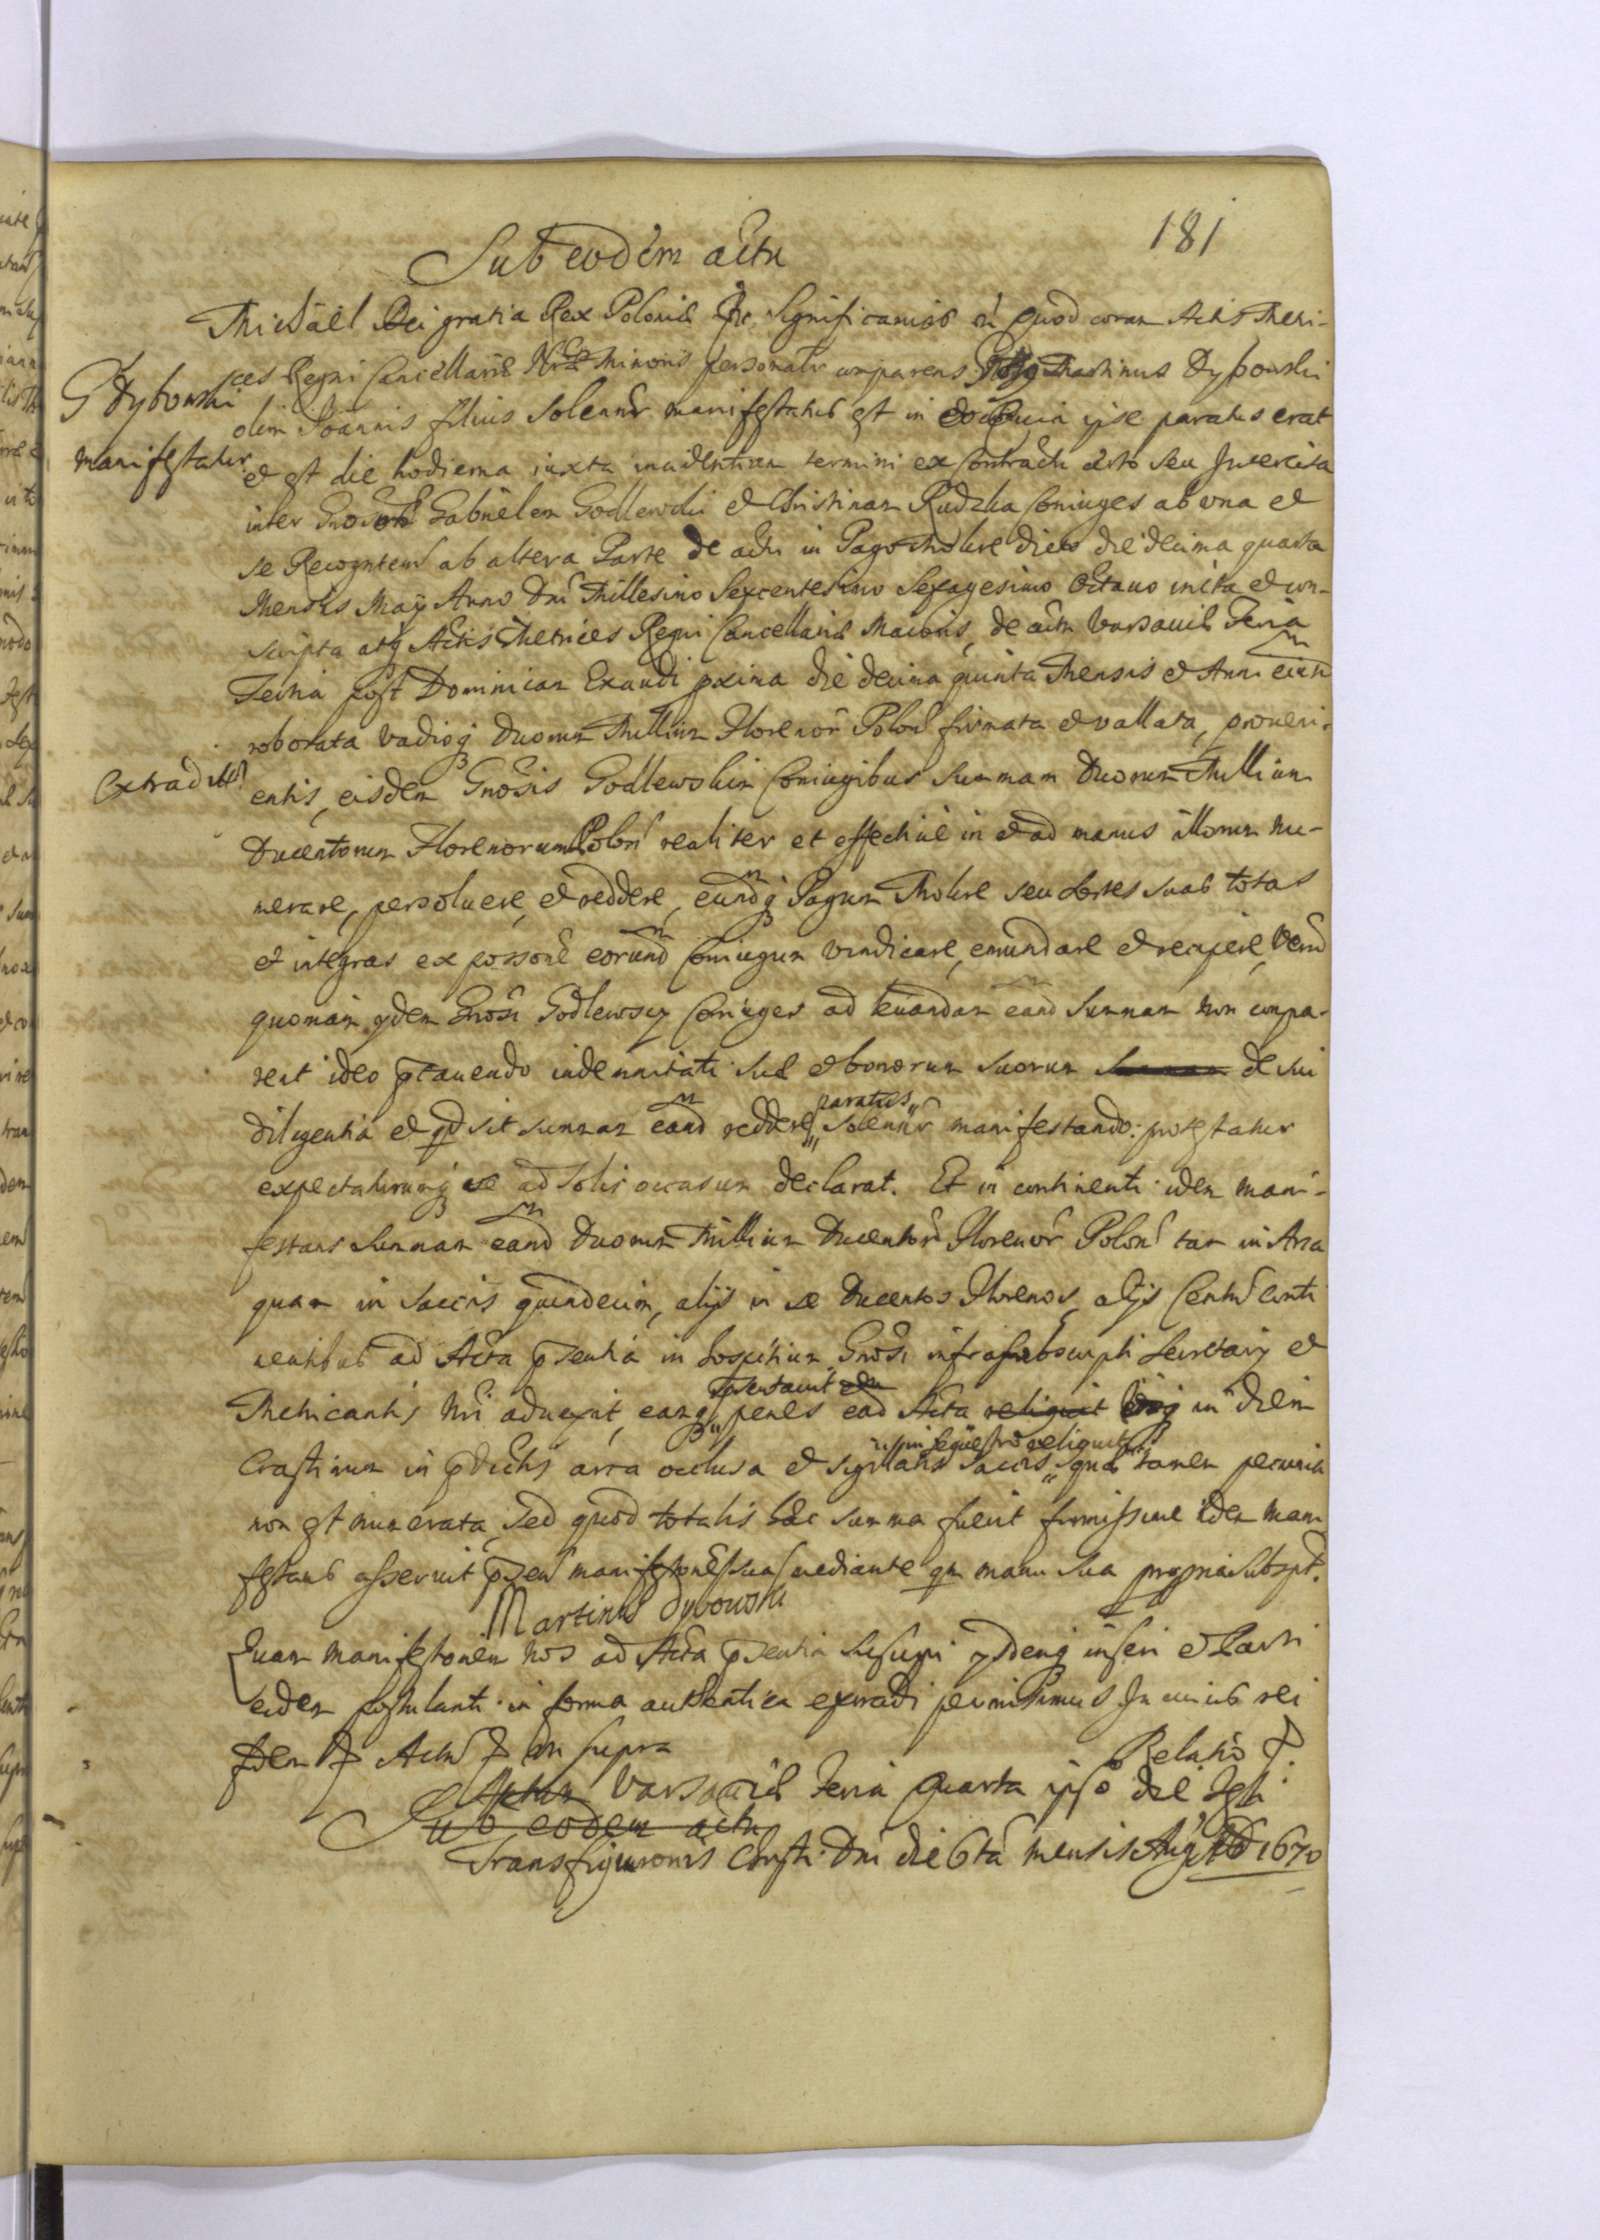 181
Sub eodem actu
Michael Dei gratia Rex Poloniae &c. Significamus &c. quod coram Actis Metri-
ces Regni Cancellariae Nrae Minoris personalr comparens Gnosus Martinus Dybowski
G Dybowski
manifestatur
olim Joannis filius Solennr manifestatus est in eo Quia ipse paratus erat
et est die hodierna iuxta incidentiam termini ex Contractu certo seu Intercisa
inter Gnosos Gabrielem Godlewski et Christinam Rudzka Coniuges ab una et
se Recogntem ab altera Parte de actu in Pago Mokre dicto die decima quarta
Mensis Maÿ Anno Dni Millesimo Sexcentesimo Sexagesimo Octauo inita et con-
scripta atq Actis Metrices Regni Cancellariae Maioris, de actu Varsauiae Feria
Tertia post Dominicam Exaudi pxima die decima quinta Mensis et Anni eiusd
roborata vadioq duorum Millium Florenor Polon firmata et vallata, proueni-
Extradit
entis, eisdem Gnosis Godlewskim Coniugibus Summam Duorum Millium
Ducentorum Florenorum Polon realiter et effectiue in et ad manus illorum nu-
merare, persoluere, et reddere, eundq Pagum Mokre seu Sortes suas totas
et integras ex possone eorund Coniugum vindicare, emundare et recipere, Verum
quoniam ydem Gnosi Godlewscy Coniuges ad leuandam eand Summam non compa-
rent ideo pcauendo indemnitati suae et bonorum suorum de sui
diligentia et qd sit summam eand reddere paratus solennr manifestando: protestatur
expectaturumq se ad Solis occasum declarat. Et in continenti idem mani-
festans Summam eand Duorum Millium Ducentor Florenor Polon tam in Arca
quam in saccis quindecim, alijs in se Ducentos Florenos, alijs Centum conti
nentibus ad Acta psentia in hospitium Gnosi infrascripti Secretarij et
Metricantis Nri aduexit, eamq psentauit penes ead Acta religuit in diem
Crastinum in pdictis arca occlusa et sigillatis saccis in sequestro reliquit quae tamen pecunia
non est numerata, Sed quod totalis haec summa fuerit firmissime idem mani
festans asseruit psen manifestone sua mediante qm manu sua propria subspt.
Martinus Dybowski
Quam manifestonem nos ad Acta psentia suscipi ydemq inseri et Parti
eidem postulanti in forma authentica extradi permisimus In cuius rei
fidem & Actum & ut supra
Relatio &.
Actum Varsauiae Feria Quarta ipso die Festi
Sub eodem actu
Transfiguronis Christi Dni die 6ta mensis Aug AD 1670